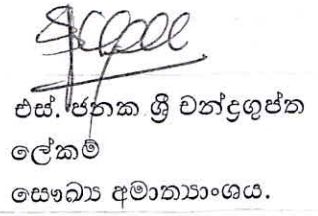 එස්. ජනක ශ්‍රී චන්ද්‍රගුප්ත
ලේකම්
සෞඛ්‍ය අමාත්‍යාංශය.